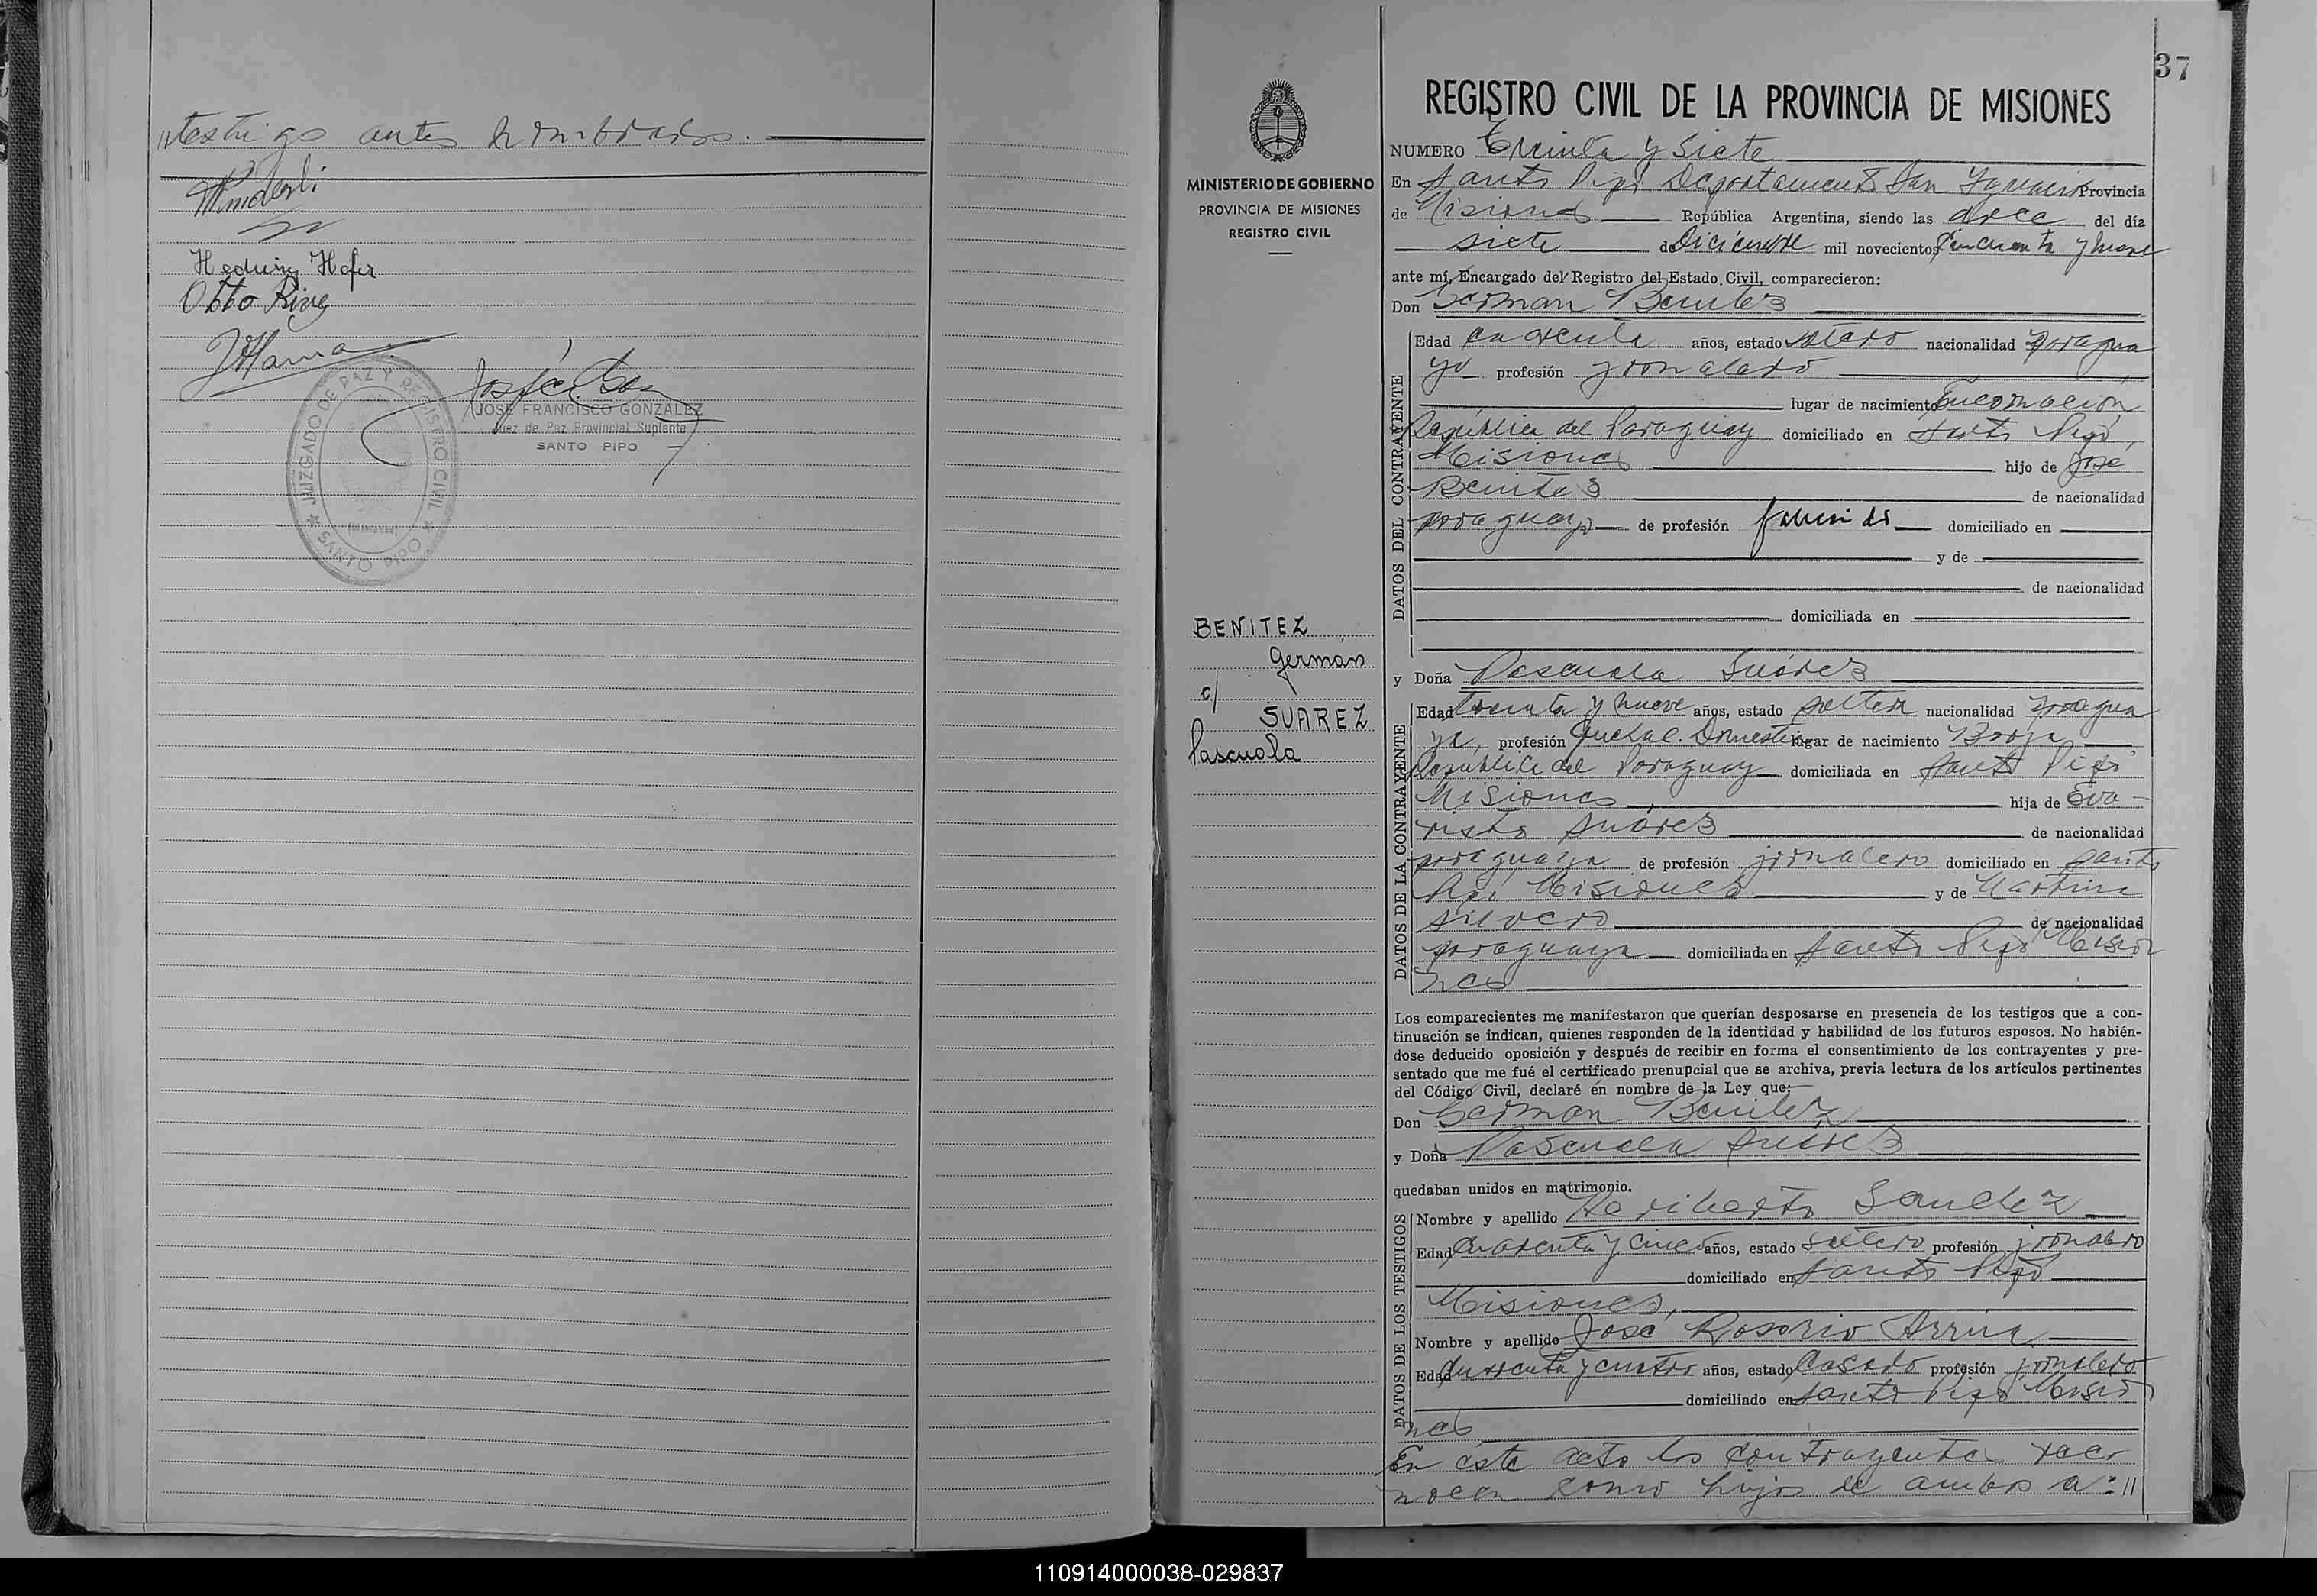 //testigo antes nombrados.
Hedwig Hofer
Otto Ring
JUZGADO DE PAZ Y REGISTRO CIVIL
★ SANTO PIPO ★
(MISIONES)
JOSÉ FRANCISCO GONZALEZ
Juez de Paz Provincial Suplente
SANTO PIPO
MINISTERIO DE GOBIERNO
PROVINCIA DE MISIONES
REGISTRO CIVIL
BENITEZ
German
c/
SUAREZ
Pascuala
37
REGISTRO CIVIL DE LA PROVINCIA DE MISIONES
NUMERO Treinta y Siete
En Santo Pipó Departamento San Ignacio Provincia
de Misiones República Argentina, siendo las doce del día
siete de Diciembre mil novecientos cincuenta y nueve
ante mí, Encargado del Registro del Estado Civil, comparecieron:
Don German Benitez
DATOS DEL CONTRAYENTE
Edad cuarenta años, estado soltero nacionalidad paragua
yo profesión jornalero
lugar de nacimiento Encarnación
República del Paraguay domiciliado en Santo Pipó,
Misiones hijo de José
Benitez de nacionalidad
paraguaya de profesión domiciliado en
y de
de nacionalidad
domiciliada en
y Doña Pascuala Suárez
DATOS DE LA CONTRAYENTE
Edad treinta y nueve años, estado soltera nacionalidad paragua
ya, profesión Quehac. Domestic. lugar de nacimiento Borja
República del Paraguay domiciliada en Santo Pipó
Misiones hija de Eva-
risto Suárez de nacionalidad
paraguaya de profesión jornalero domiciliado en Santo
Pipó Misiones y de Martina
Silvero de nacionalidad
paraguaya domiciliada en Santo Pipó Misio
nes
Los comparecientes me manifestaron que querían desposarse en presencia de los testigos que a con-
tinuación se indican, quienes responden de la identidad y habilidad de los futuros esposos. No habién-
dose deducido oposición y después de recibir en forma el consentimiento de los contrayentes y pre-
sentado que me fué el certificado prenupcial que se archiva, previa lectura de los artículos pertinentes
del Código Civil, declaré en nombre de la Ley que:
Don German Benitez
y Doña Pascuala Suárez
quedaban unidos en matrimonio.
DATOS DE LOS TESTIGOS
Nombre y apellido Heriberto Sanchez
Edad Cuarenta y cinco años, estado soltero profesión jornalero
domiciliado en Santo Pipó
Misiones,
Nombre y apellido José Rosario Arrua
Edad cuarenta y cuatro años, estado Casado profesión jornalero
domiciliado en Santo Pipó Misio
nes
En éste acto los contrayentes reco
nocen como hijos de ambos a: //
110914000038-029837